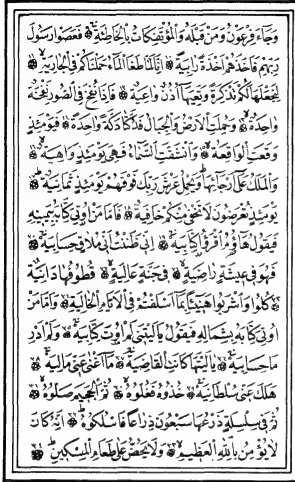 وَجَاءَ فِرْعَوْنُ وَمَنْ قَبْلَهُ وَالْمُؤْتَفِكَاتُ بِالْخَاطِئَةِ ۞ فَعَصَوْا رَسُولَ
رَبِّهِمْ فَأَخَذَهُمْ أَخْذَةً رَابِيَةً ۞ إِنَّا لَمَّا طَغَا الْمَاءُ حَمَلْنَاكُمْ فِي الْجَارِيَةِ ۞
لِنَجْعَلَهَا لَكُمْ تَذْكِرَةً وَتَعِيَهَا أُذُنٌ وَاعِيَةٌ ۞ فَإِذَا نُفِخَ فِي الصُّورِ نَفْخَةٌ
وَاحِدَةٌ ۞ وَحُمِلَتِ الْأَرْضُ وَالْجِبَالُ فَدُكَّتَا دَكَّةً وَاحِدَةً ۞ فَيَوْمَئِذٍ
وَقَعَتِ الْوَاقِعَةُ ۞ وَانْشَقَّتِ السَّمَاءُ فَهِيَ يَوْمَئِذٍ وَاهِيَةٌ ۞
وَالْمَلَكُ عَلَى أَرْجَائِهَا وَيَحْمِلُ عَرْشَ رَبِّكَ فَوْقَهُمْ يَوْمَئِذٍ ثَمَانِيَةٌ ۞
يَوْمَئِذٍ تُعْرَضُونَ لَا تَخْفَى مِنْكُمْ خَافِيَةٌ ۞ فَأَمَّا مَنْ أُوتِيَ كِتَابَهُ بِيَمِينِهِ
فَيَقُولُ هَاؤُمُ اقْرَؤُا كِتَابِيَهْ ۞ إِنِّي ظَنَنْتُ أَنِّي مُلَاقٍ حِسَابِيَهْ ۞
فَهُوَ فِي عِيشَةٍ رَاضِيَةٍ ۞ فِي جَنَّةٍ عَالِيَةٍ ۞ قُطُوفُهَا دَانِيَةٌ
۞ كُلُوا وَاشْرَبُوا هَنِيئًا بِمَا أَسْلَفْتُمْ فِي الْأَيَّامِ الْخَالِيَةِ ۞ وَأَمَّا مَنْ
أُوتِيَ كِتَابَهُ بِشِمَالِهِ فَيَقُولُ يَا لَيْتَنِي لَمْ أُوتَ كِتَابِيَهْ ۞ وَلَمْ أَدْرِ
مَا حِسَابِيَهْ ۞ يَا لَيْتَهَا كَانَتِ الْقَاضِيَةَ ۞ مَا أَغْنَى عَنِّي مَالِيَهْ ۞
هَلَكَ عَنِّي سُلْطَانِيَهْ ۞ خُذُوهُ فَغُلُّوهُ ۞ ثُمَّ الْجَحِيمَ صَلُّوهُ ۞
ثُمَّ فِي سِلْسِلَةٍ ذَرْعُهَا سَبْعُونَ ذِرَاعًا فَاسْلُكُوهُ ۞ إِنَّهُ كَانَ
لَا يُؤْمِنُ بِاللَّهِ الْعَظِيمِ ۞ وَلَا يَحُضُّ عَلَى طَعَامِ الْمِسْكِينِ ۞